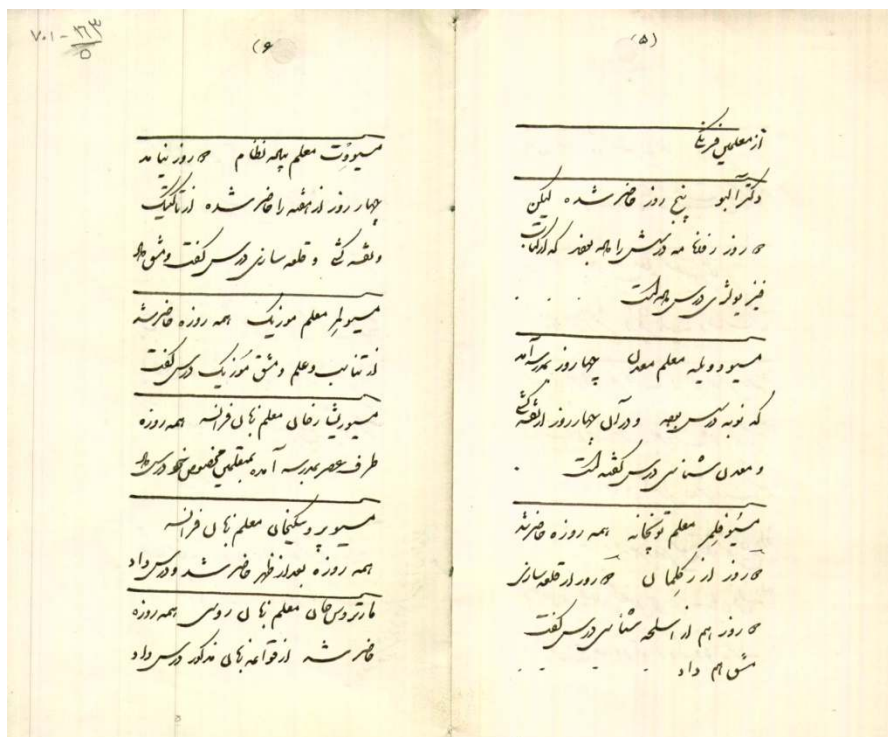 (۵)
از معلمین فرنگی
دکتر آلبو پنج روز حاضر شده لیکن
روز درسش را که از کلمات
فیزیولژی درس داده است
مسیو دویله معلم معدن چهار روز بمدرسه آمد
که نوبه درسش بوده و در آن چهار روز از نقشه کشی
و معدن شناسی درس گفته است
مسیو فلمر معلم توپخانه همه روزه حاضر شد
روز از رگلمان روز از قلعه سازی
روز هم از اسلحه شناسی درس گفت
مشق هم داد
۷۰۱ - ۲۶۳
۵
(۶
مسیو وت معلم پیاده نظام روز نیامد
چهار روز از هفته را حاضر شده از تاکتیک
و نقشه کشی و قلعه سازی درس گفت و مشق داد
مسیو لمر معلم موزیک همه روزه حاضر شد
از تناسب و علم و مشق موزیک درس گفت
مسیو ریشارخان معلم زبان فرانسه همه روزه
طرف عصر بمدرسه آمده بمتعلمین مخصوص خود درس داد
مسیو پروسکیخان معلم زبان فرانسه
همه روزه بعد از ظهر حاضر شد و درس داد
مارتروس خان معلم زبان روسی همه روزه
حاضر شد از قواعد زبان مذکور درس داد